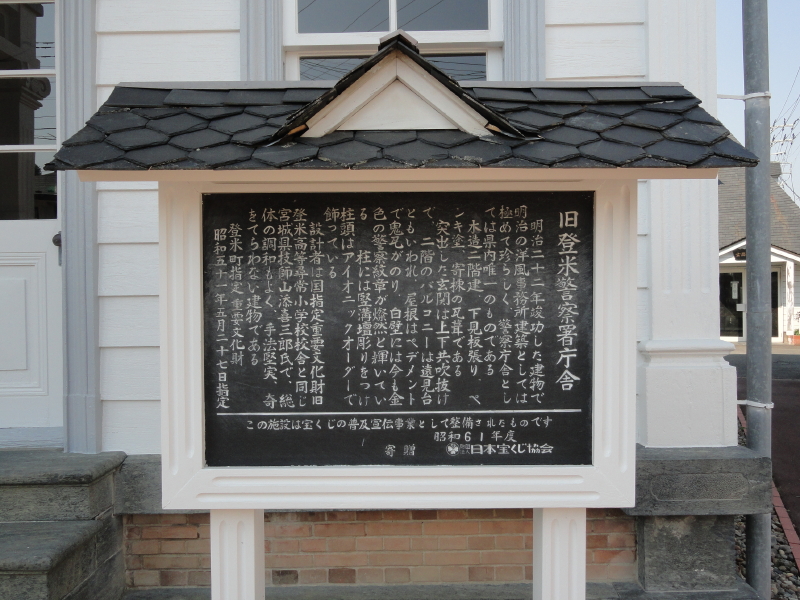 旧登米警察署庁舎
明治二十二年竣功した建物で
明治の洋風事務所建築としては
極めて珍らしく、警察庁舎とし
ては県内唯一のものである
木造二階建、下見板張り、ペ
ンキ塗、寄棟の瓦葺である
突出した玄関は上下共吹抜け
で、二階のバルコニーは遠見台
ともいわれ、屋根はペデメント
で鬼瓦がのり、白壁には今も金
色の警察紋章が燦然と輝いてい
る 柱には竪溝壇彫りをつけ
柱頭はアイオニックオーダーで
飾っている
設計者は国指定重要文化財旧
登米高等尋常小学校校舎と同じ
宮城県技師山添喜三郎氏で、総
体の調和もよく、手法堅実、奇
をてらわない建物である
登米町指定 重要文化財
昭和五十一年五月二十七日指定
この施設は宝くじの普及宣伝事業として整備されたものです
昭和61年度
寄贈 日本宝くじ協会